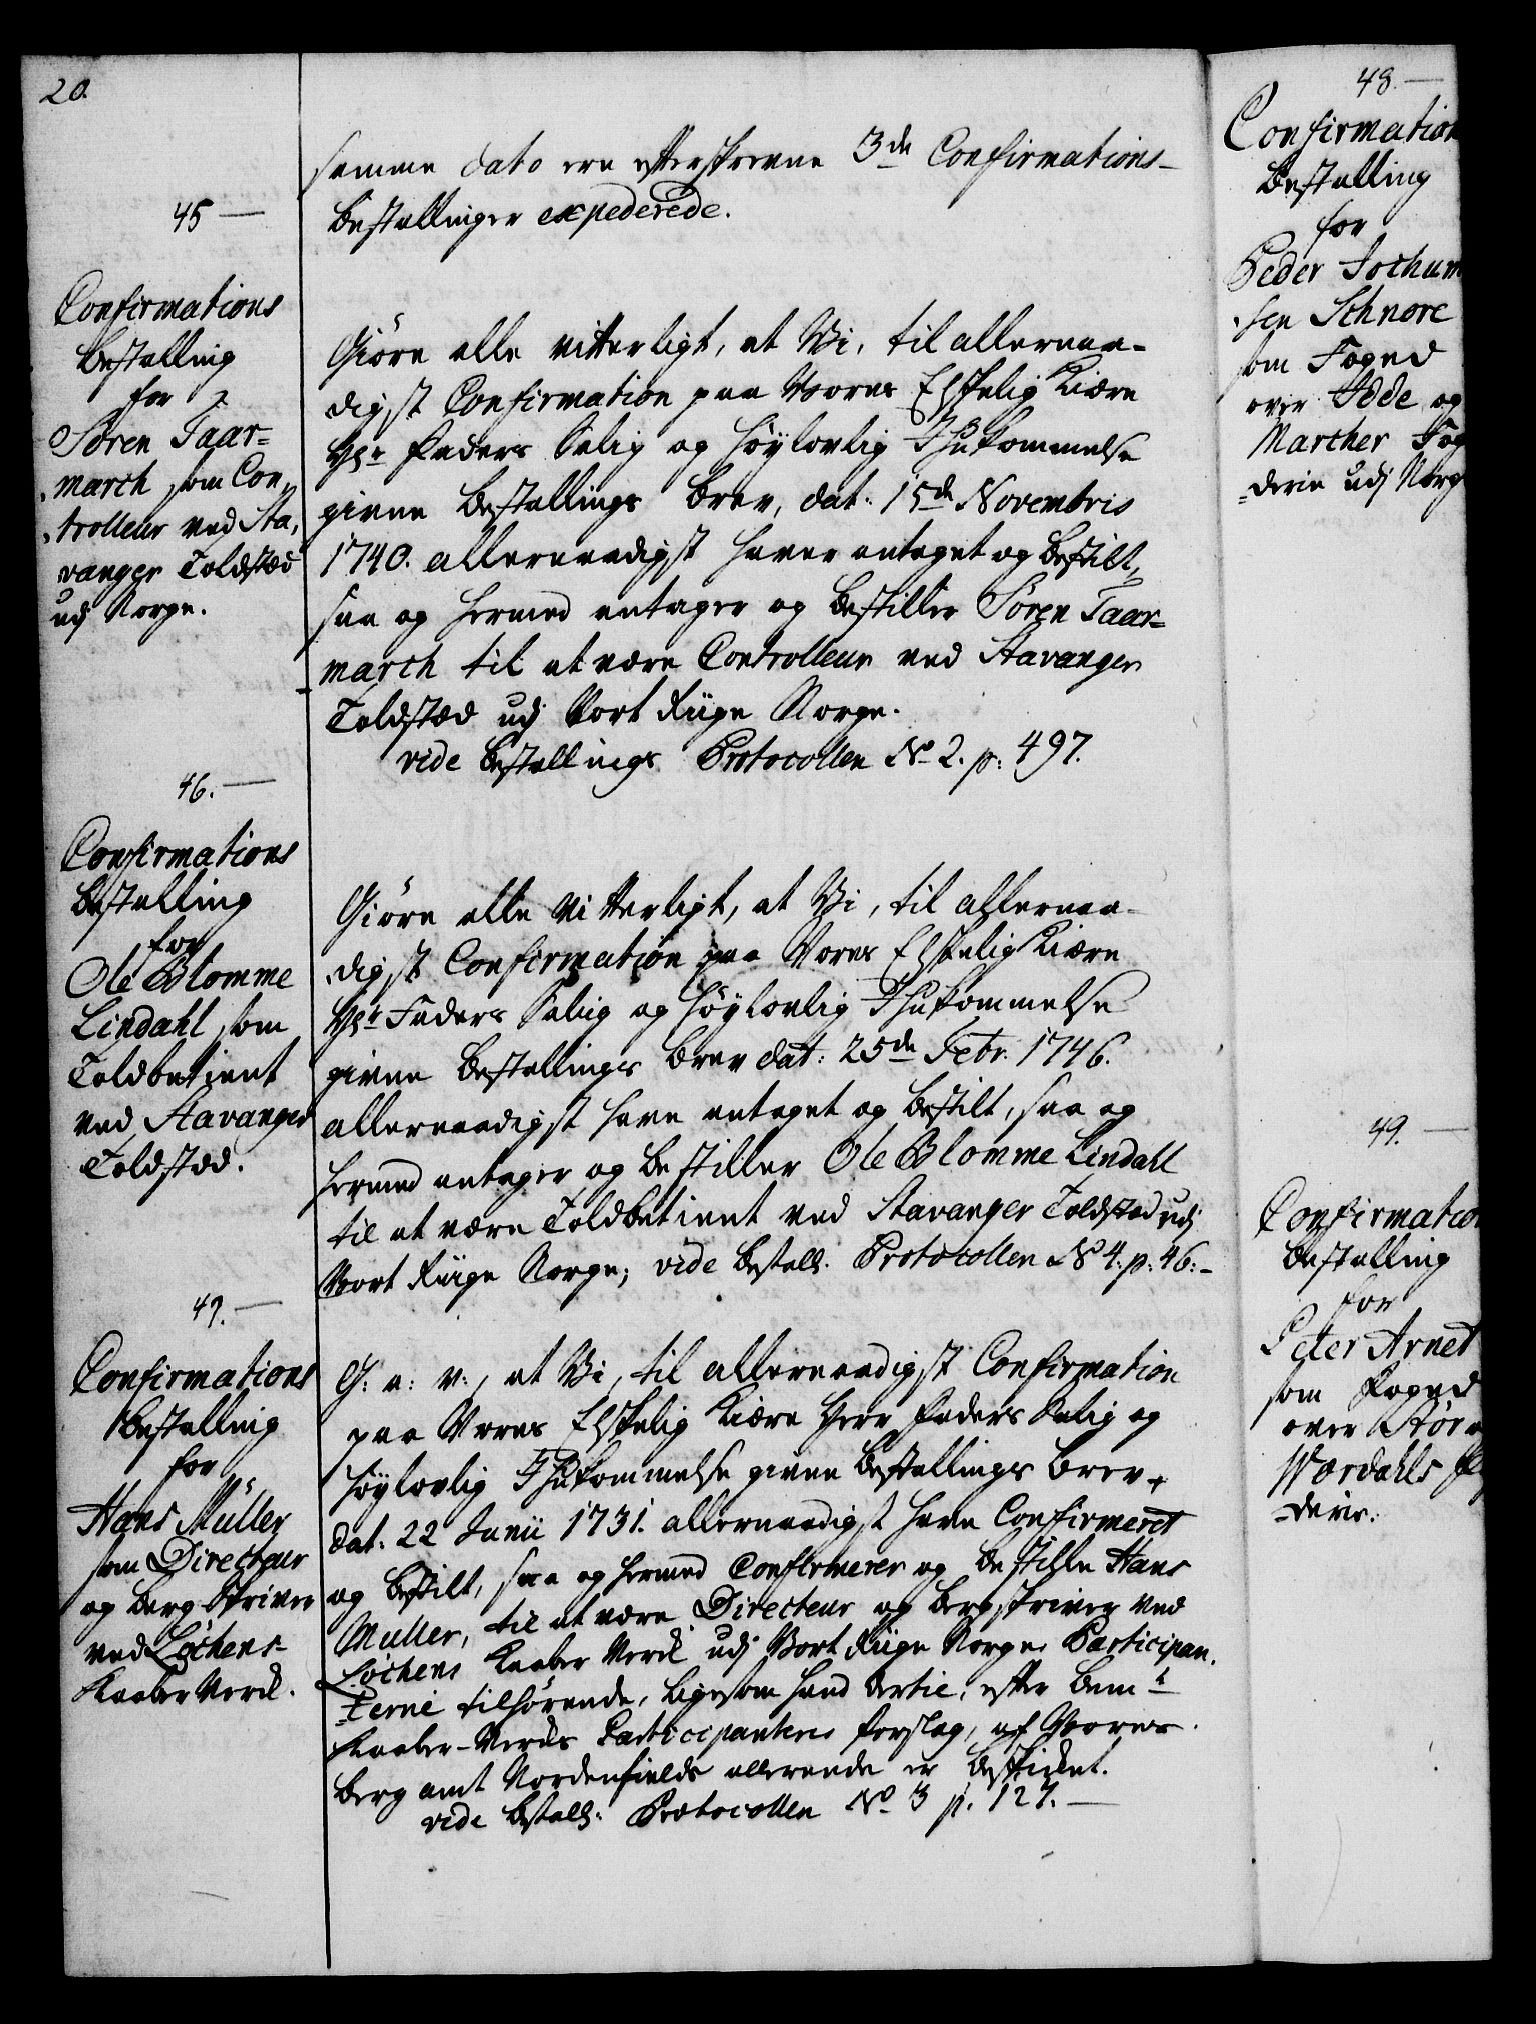 20.
samme dato ere efterskrevne 3de Confirmations-
Bestallinger expederede.
45 —
Confirmations
Bestalling
for
Søren Taar=
march som Con-
trolleur ved Sta,
vanger Toldstæd
udj Norge.
Giøre alle vitterligt, at Vi, til allernaa-
digst Confirmation paa Vores Elskelig Kiære
Hr Faders Salig og Høylovlig Ihukommelse
givne Bestallings Brev, dat: 15de Novembris
1740. allernaadigst haver antaget og bestilt,
saa og hermed antager og bestiller Søren Taar=
march til at være Controlleur ved Stavanger
Toldstæd udj Vort Riige Norge.
vide Bestallings Protocollen No 2. p: 497.
46. —
Confirmations
Bestalling
for
Ole Blomme
Lindahl som
Toldbetient
ved Stavanger
Toldstæd.
Giøre alle Vitterligt, at Vi, til allernaa-
digst Confirmation paa Vores Elskelig Kiære
Hr Faders Salig og Høylovlig Ihukommelse
givne Bestallings Brev dat: 25de Febr. 1746.
allernaadigst have antaget og bestilt, saa og
hermed antager og bestiller Ole Blomme Lindahl
til at være Toldbetient ved Stavanger Toldstæd udj
Vort Riige Norge; vide Bestall. Protocollen No 4. p: 46. -
47. —
Confirmations
Bestalling
for
Hans Müller
som Directeur
og Berg Skriver
ved Løchens
Kaaber Verck.
G: a: v:, at Vi, til allernaadigst Confirmation
paa Vores Elskelig Kiære Herr Faders Salig og
Høylovlig Ihukommelse givne Bestallings Brev,
dat: 22 Junii 1731. allernaadigst have Confirmeret
og bestilt, saa og hermed Confirmerer og bestille Hans
Müller, til at være Directeur og Bergskriver ved
Løchens Kaaber Verck udj Vort Riige Norge Participan-
terne tilhørende, ligesom hand dertil, efter bemte
Kaaber-Vercks Participanteres forslag, af Vores
Berg Amt Nordenfields allerede er beskicket.
vide Bestall: Protocollen No 3 p. 127. —
48. —
Confirmation
Bestalling
for
Peder Jochum
sen Schnore
som Foged
over Idde og
Marcher Fog
=derie udj Norg
49. —
Confirmation
Bestalling
for
Peter Arnet
som Foged
over Stør
Wærdahls
=derie.